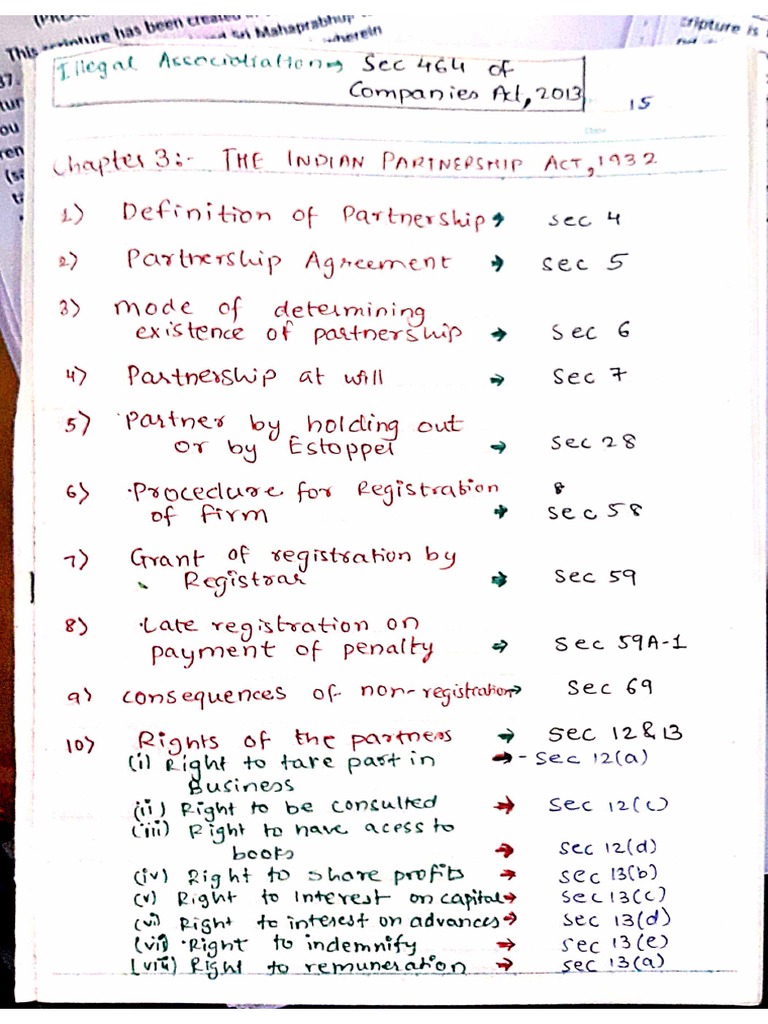 This scripture has been created
Sri Mahaprabhu
wherein
scripture is
37.
ou
Illegal Association → Sec 464 of
Companies Act, 2013
15
Chapter 3:- THE INDIAN PARTNERSHIP ACT, 1932
1) Definition of Partnership → sec 4
2) Partnership Agreement → sec 5
3) mode of determining
existence of partnership → Sec 6
4) Partnership at will → Sec 7
5) Partner by holding out
or by Estoppel → Sec 28
6) Procedure for Registration
of firm → sec 58
7) Grant of registration by
Registrar → Sec 59
8) Late registration on
payment of penalty → Sec 59A-1
9) consequences of non-registration → Sec 69
10) Rights of the partners → sec 12 & 13
(i) Right to take part in → - Sec 12(a)
Business
(ii) Right to be consulted → Sec 12(c)
(iii) Right to have acess to
books → Sec 12(d)
(iv) Right to share profits → sec 13(b)
(v) Right to interest on capital → sec 13(c)
(vi) Right to interest on advances → sec 13(d)
(vii) Right to indemnify → sec 13(e)
(viii) Right to remuneration → sec 13(a)